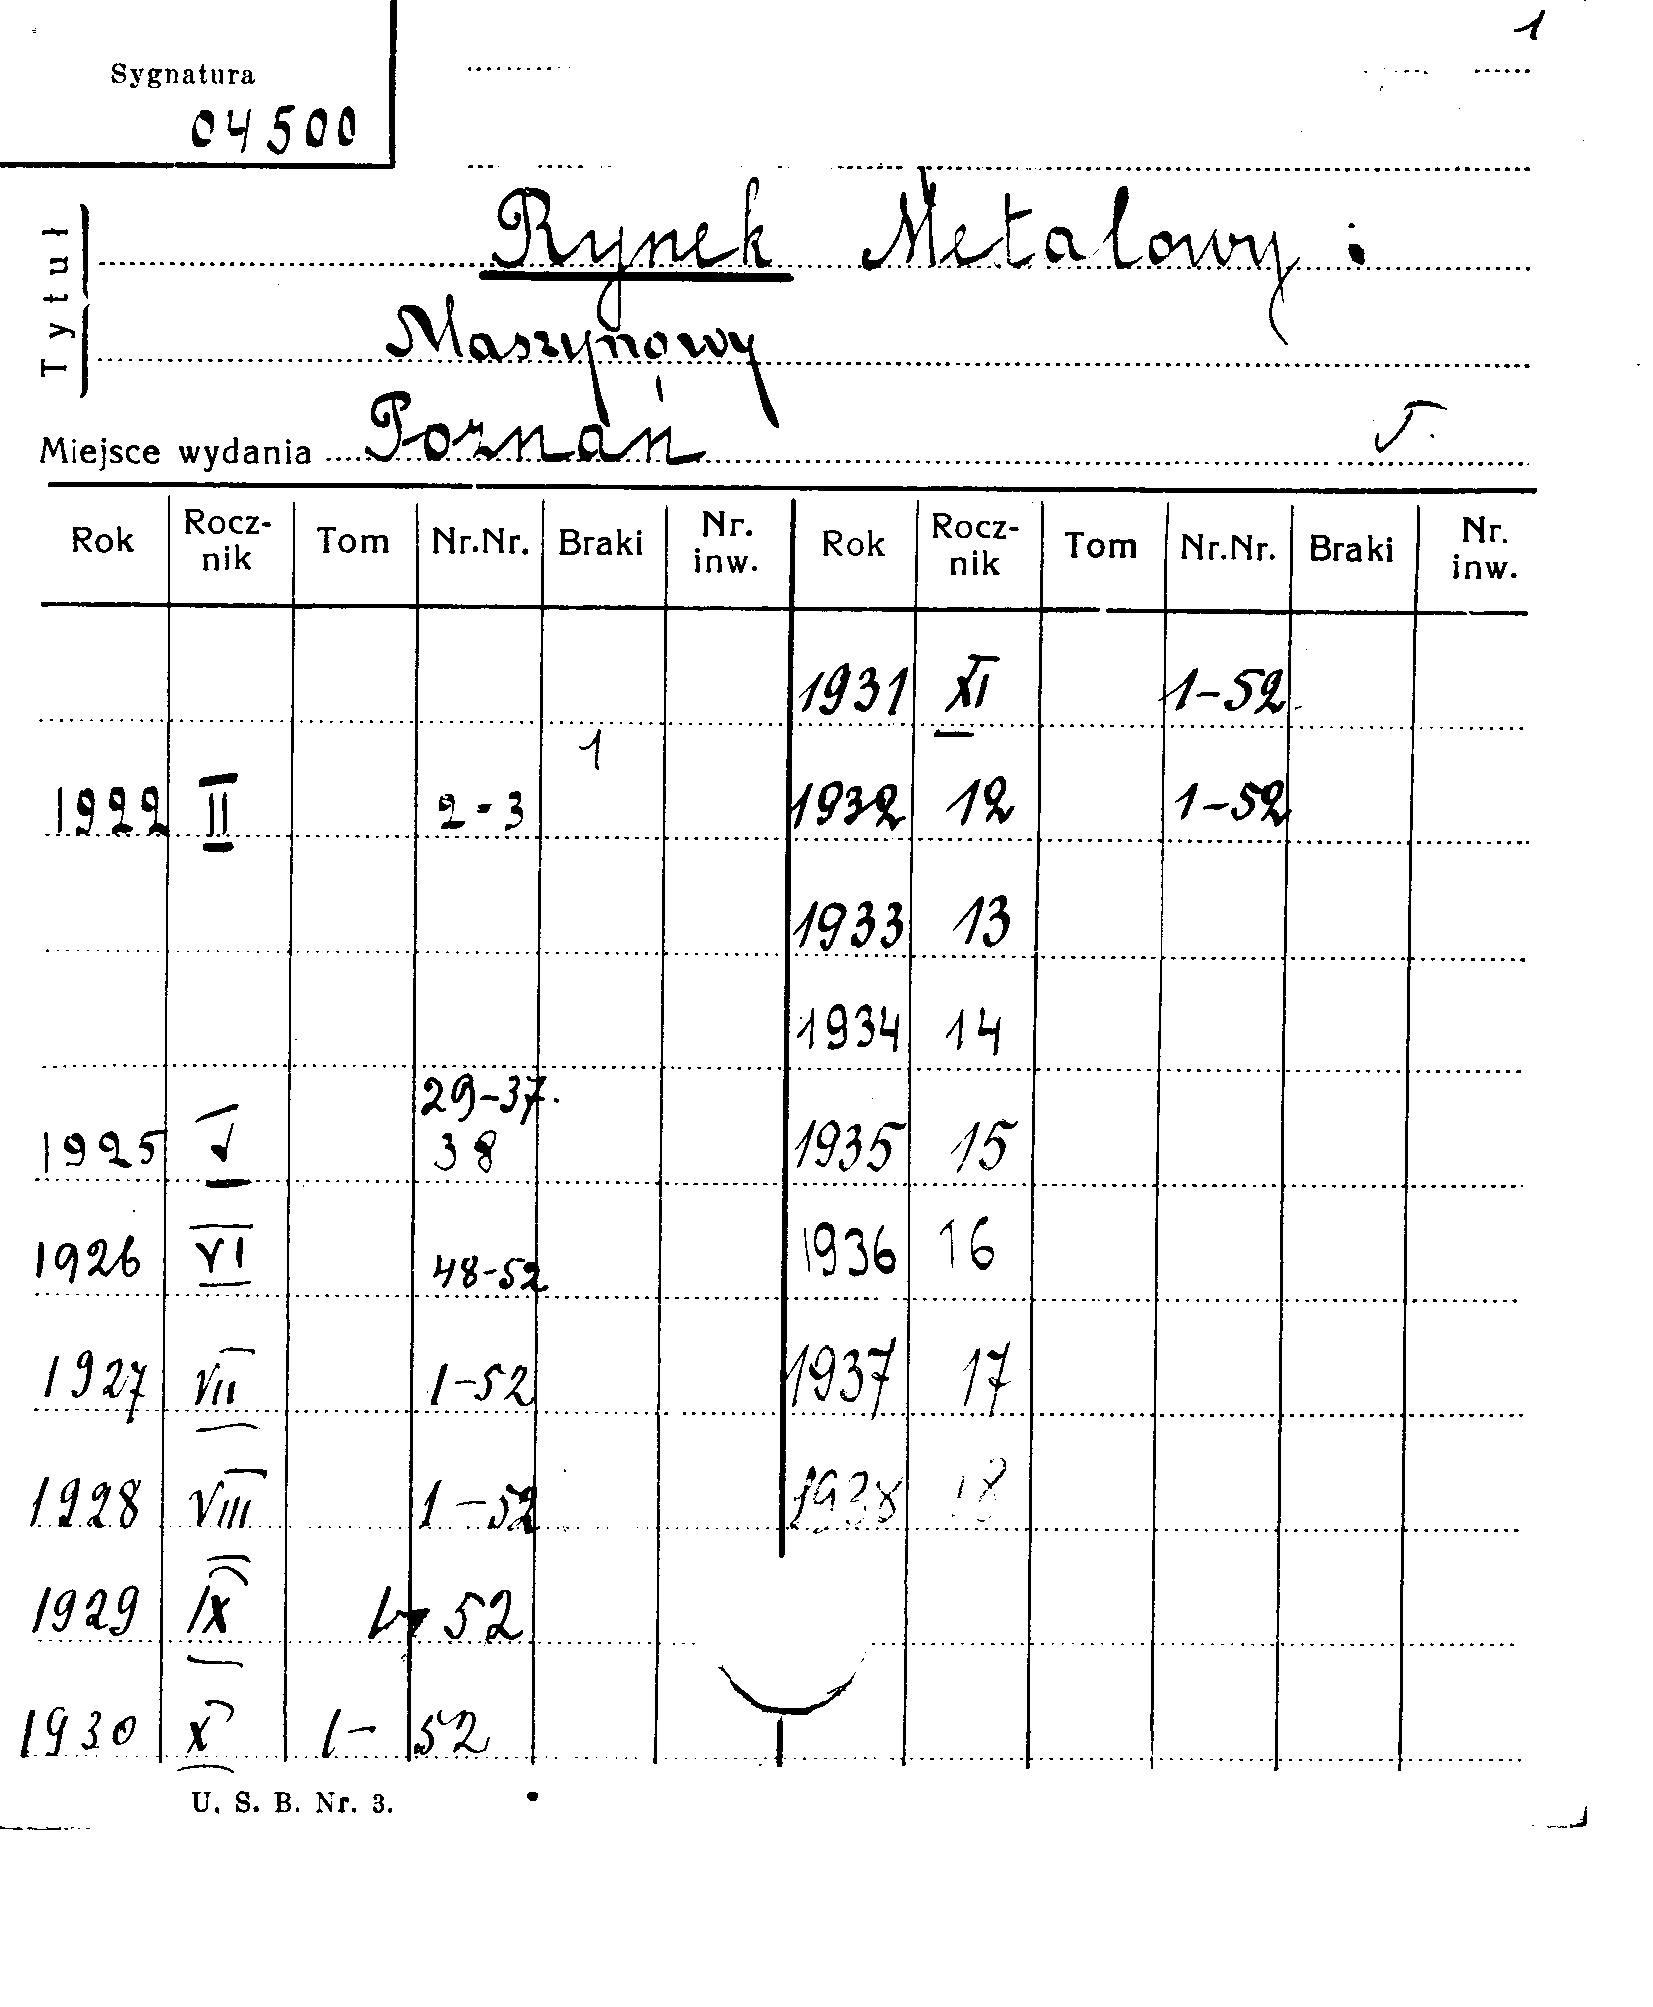 1
Sygnatura
04500
Tytuł
Rynek Metalowy i
Maszynowy
Miejsce wydania Poznań
Rok Rocz-nik Tom Nr.Nr. Braki Nr. inw. Rok Rocz-nik Tom Nr.Nr. Braki Nr. inw.
1931 XI 1-52
1
1922 II 2-3 1932 12 1-52
1933 13
1934 14
29-37.
1925 V 38 1935 15
1926 VI 48-52 1936 16
1927 VII 1-52 1937 17
1928 VIII 1-52 1938 18
1929 IX 1-52
1930 X 1-52
U. S. B. Nr. 3.